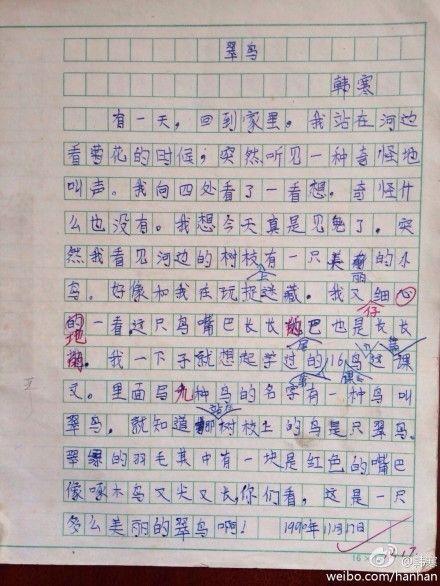 翠鸟
韩寒
有一天，回到家里。我站在河边
看菊花的时候；突然听见一种奇怪地
叫声。我向四处看了一看想。奇怪什
么也没有。我想今天真是见鬼了。突
然我看见河边的树枝上有一只美丽的小
鸟。好像和我在玩捉迷藏。我又仔细
的一看这只鸟嘴巴长长尾巴也是长长
我一下子就想起学过的第16课鸟这课
文。里面写九种鸟的名字有一种鸟叫
翠鸟。就知道站在那树枝上的鸟是只翠鸟。
翠绿的羽毛其中有一块是红色的嘴巴
像啄木鸟又尖又长，你们看，这是一只
多么美丽的翠鸟啊！ 1990年11月17日
16×
17
weibo.com/hanhan